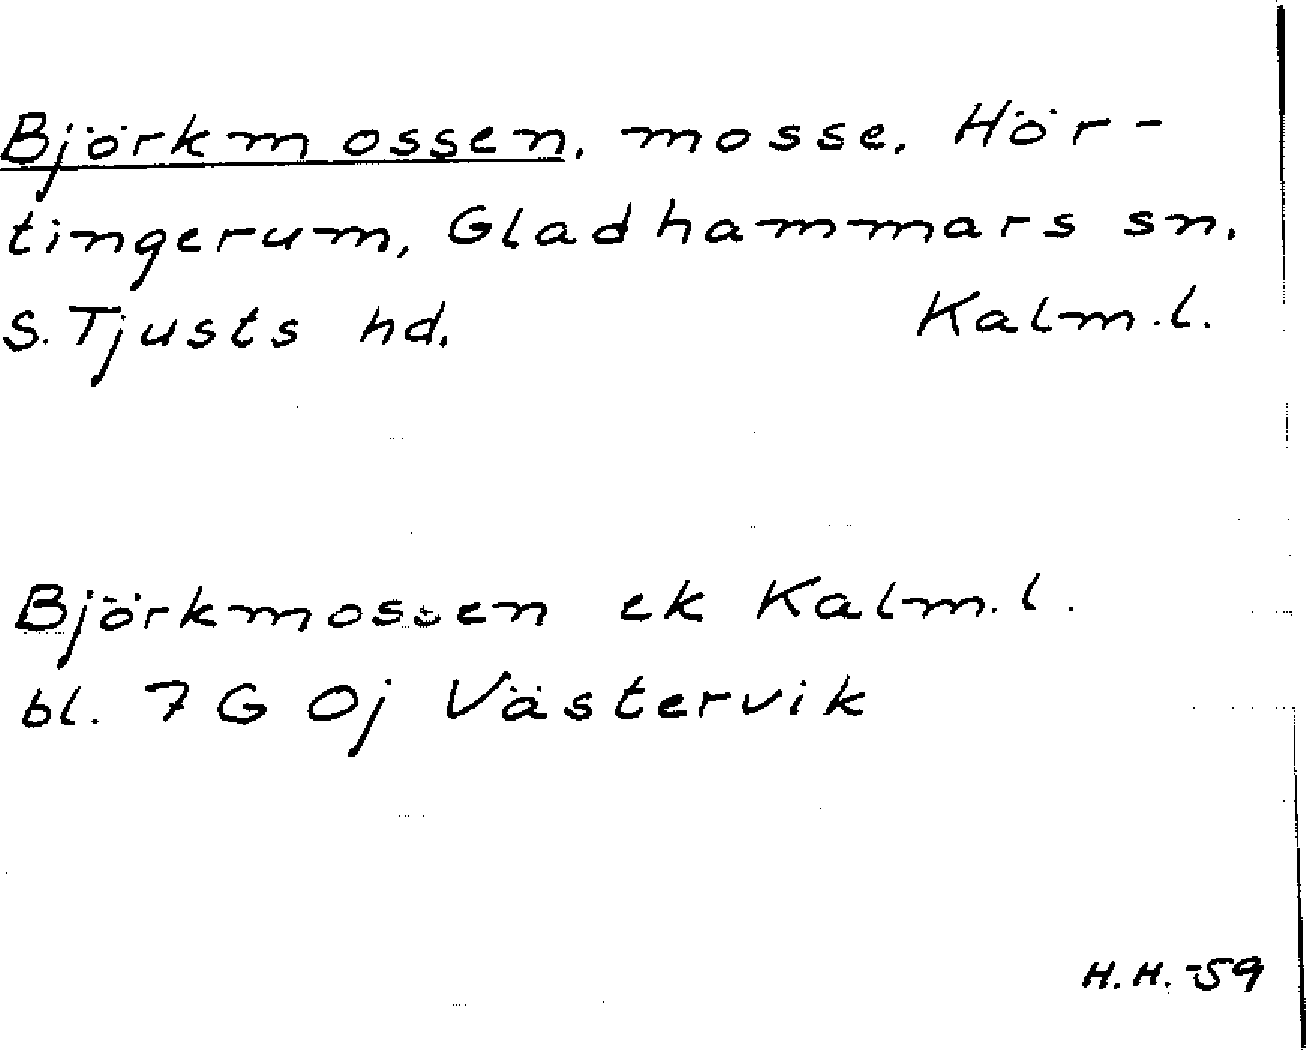 Björkmossen, mosse, Hör-
tingerum, Gladhammars sn,
S. Tjusts hd. Kalm. l.
Björkmossen ek Kalm. l.
bl. 7 G 0j Västervik
H. H. -59